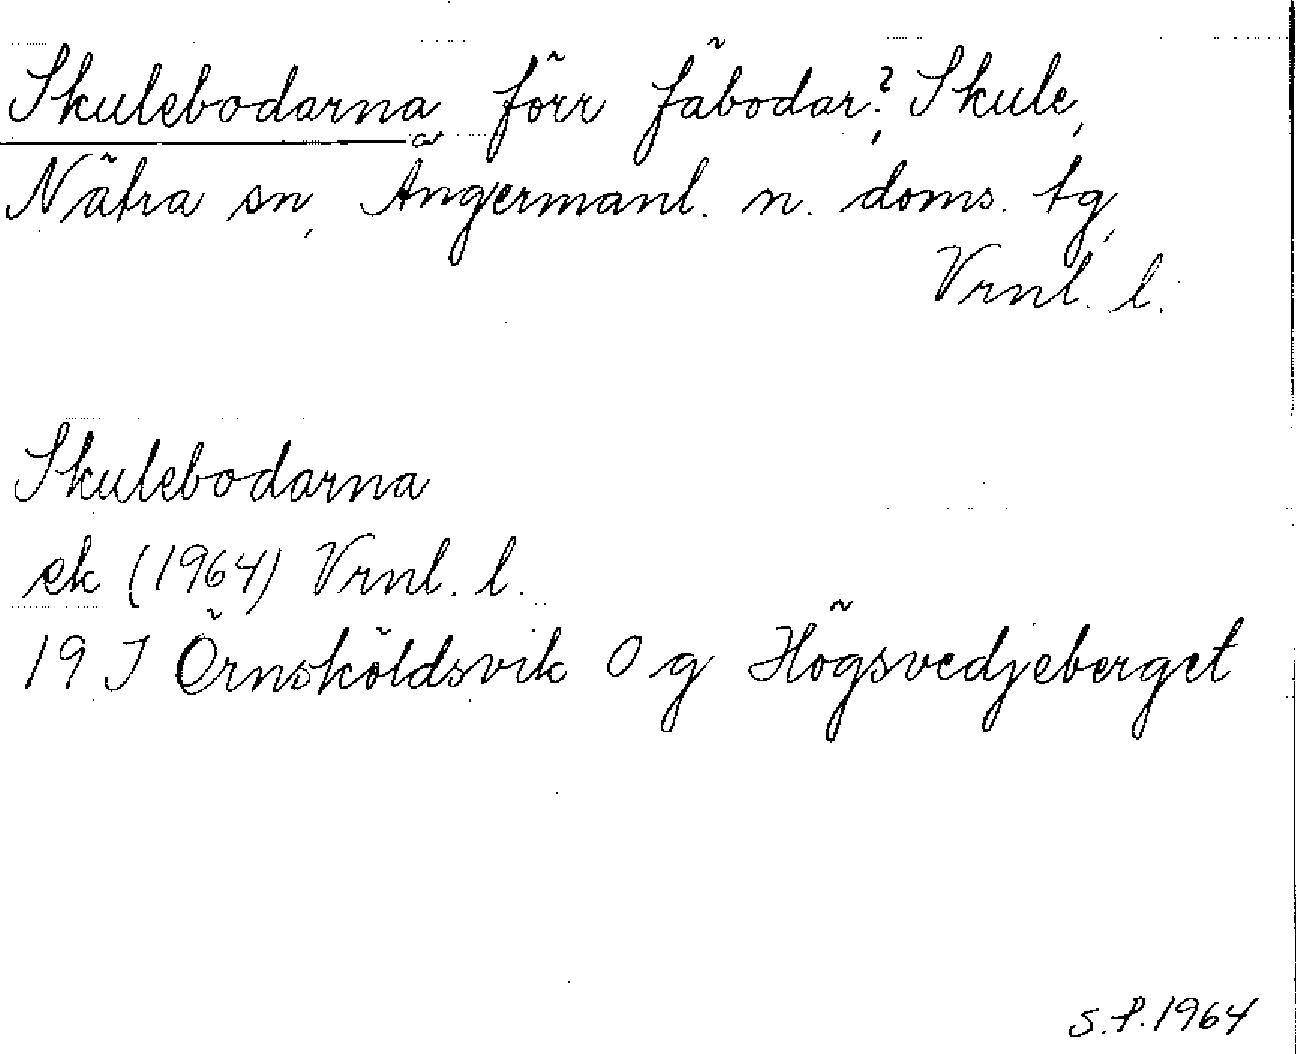 Skulebodarna förr fäbodar?, Skule,
Nätra sn, Ångermanl. n. doms. tg,
Vrnl. l.
Skulebodarna
ek (1964) Vrnl. l.
19 J Örnsköldsvik O g Högsvedjeberget
S.P.1964